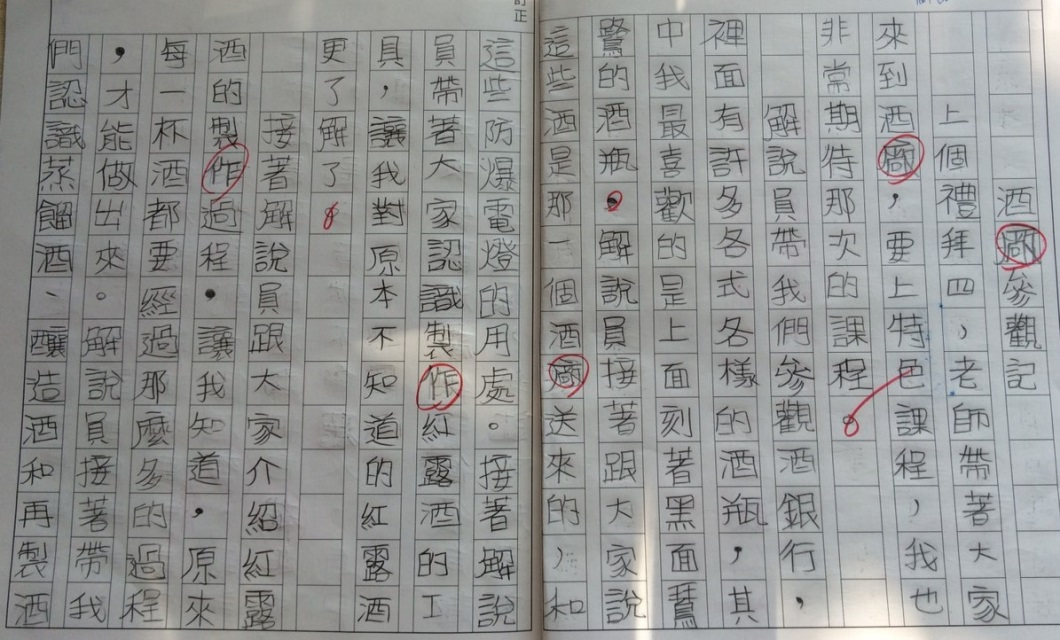 酒廠參觀記
上個禮拜四，老師帶著大家
來到酒廠，要上特色課程，我也
非常期待那次的課程。
解說員帶我們參觀酒銀行，
裡面有許多各式各樣的酒瓶，其
中我最喜歡的是上面刻著黑面
鷺的酒瓶，解說員接著跟大家說
這些酒是那一個酒廠送來的，和
訂正
這些防爆電燈的用處。接著解說
員帶著大家認識製作紅露酒的工
具，讓我對原本不知道的紅露酒
更了解了。
接著解說員跟大家介紹紅露
酒的製作過程，讓我知道，原來
每一杯酒都要經過那麼多的過程
，才能做出來。解說員接著帶我
們認識蒸餾酒、釀造酒和再製酒